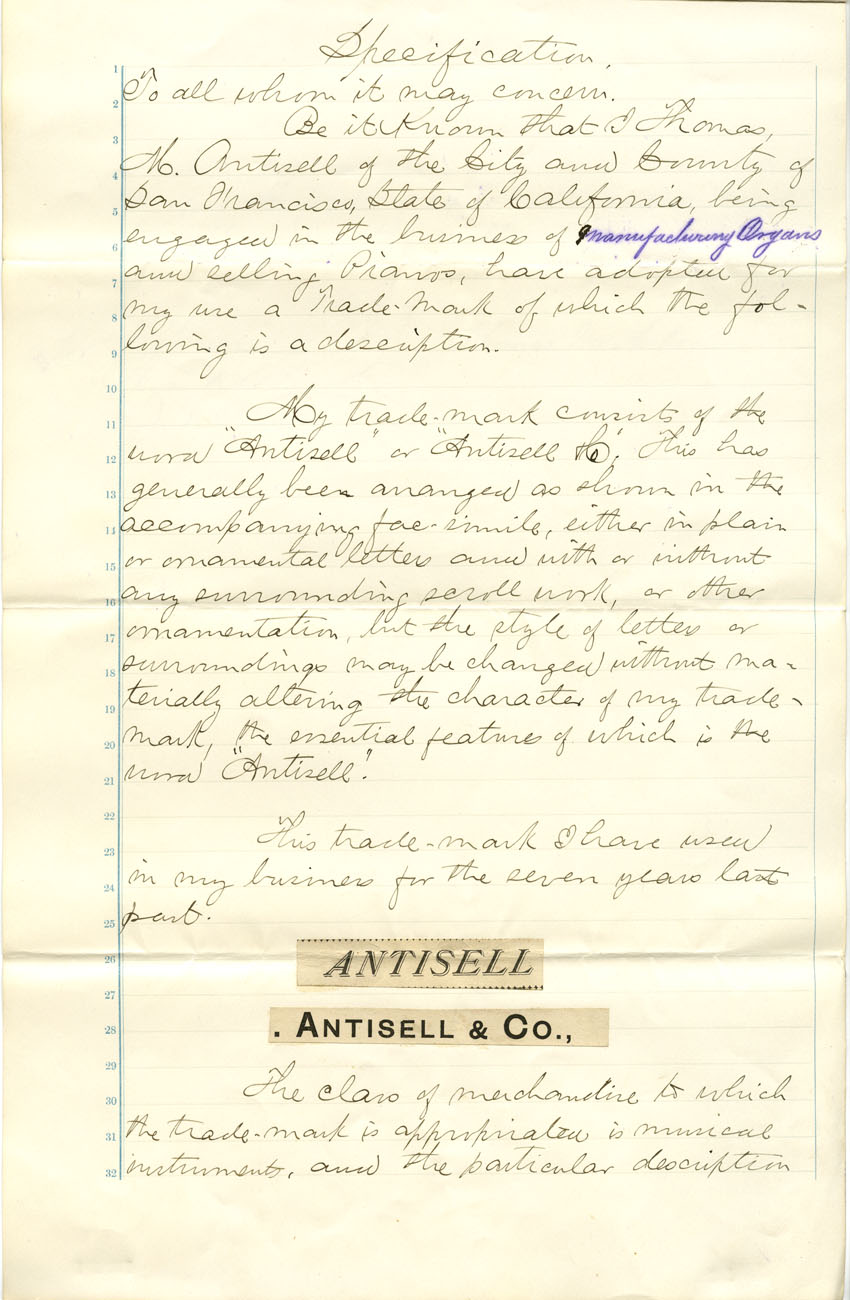 Specification.
1
To all whom it may concern.
2
Be it Known that I Thomas,
3
M. Antisell of the City and County of
4
San Francisco, State of California, being
5
engaged in the business of manufacturing Organs
6
and selling Pianos, have adopted for
7
my use a Trade-Mark of which the fol-
8
lowing is a description.
9
10
My trade-mark consists of the
11
word "Antisell" or "Antisell & Co". This has
12
generally been arranged as shown in the
13
accompanying fac-simile, either in plain
14
or ornamental letters and with or without
15
any surrounding scroll work, or other
16
ornamentation, but the style of letter or
17
surroundings may be changed without ma-
18
terially altering the character of my trade-
19
mark, the essential feature of which is the
20
word "Antisell".
21
22
This trade-mark I have used
23
in my business for the seven years last
24
past.
25
ANTISELL
26
27
. ANTISELL & CO.,
28
29
The class of merchandise to which
30
the trade-mark is appropriated is musical
31
instruments, and the particular description
32